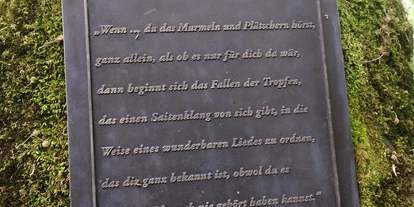 „Wenn du das Murmeln und Plätschern hörst,
ganz allein, als ob es nur für dich da wär,
dann beginnt sich das Fallen der Tropfen,
das einen Saitenklang von sich gibt, in die
Weise eines wunderbaren Liedes zu ordnen,
das dir ganz bekannt ist, obwol du es
noch nie gehört haben kannst.“